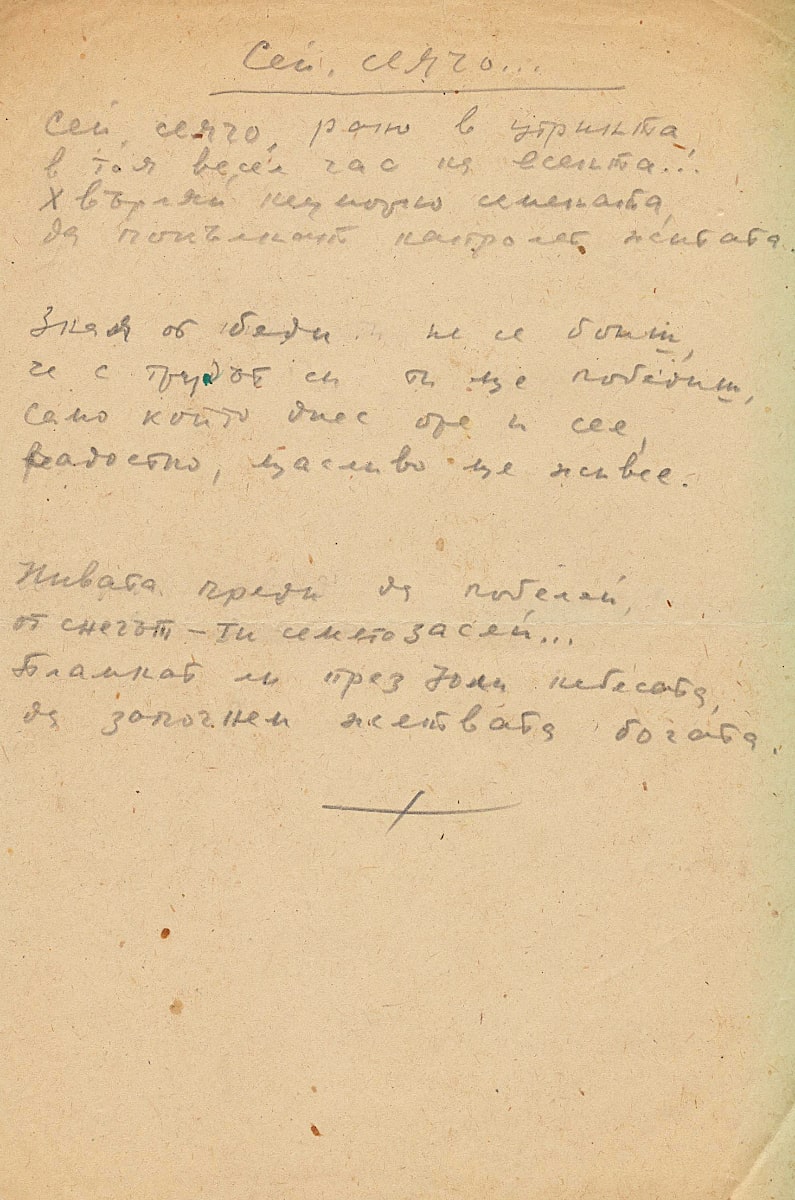 Сей, сеячо...
Сей, сеячо, рано в утринта,
в тоя весел час на есента...
Хвърляй неуморно семената,
да поникнат напролет житата.
Зная от беди не се боиш,
че с трудът си ти ще победиш,
само който днес оре и сее,
радостно, щасливо ще живее.
Нивата преди да побелей,
от снегът – ти семето засей...
Пламнат ли през Юли небесата,
да започнем жетвата богата.